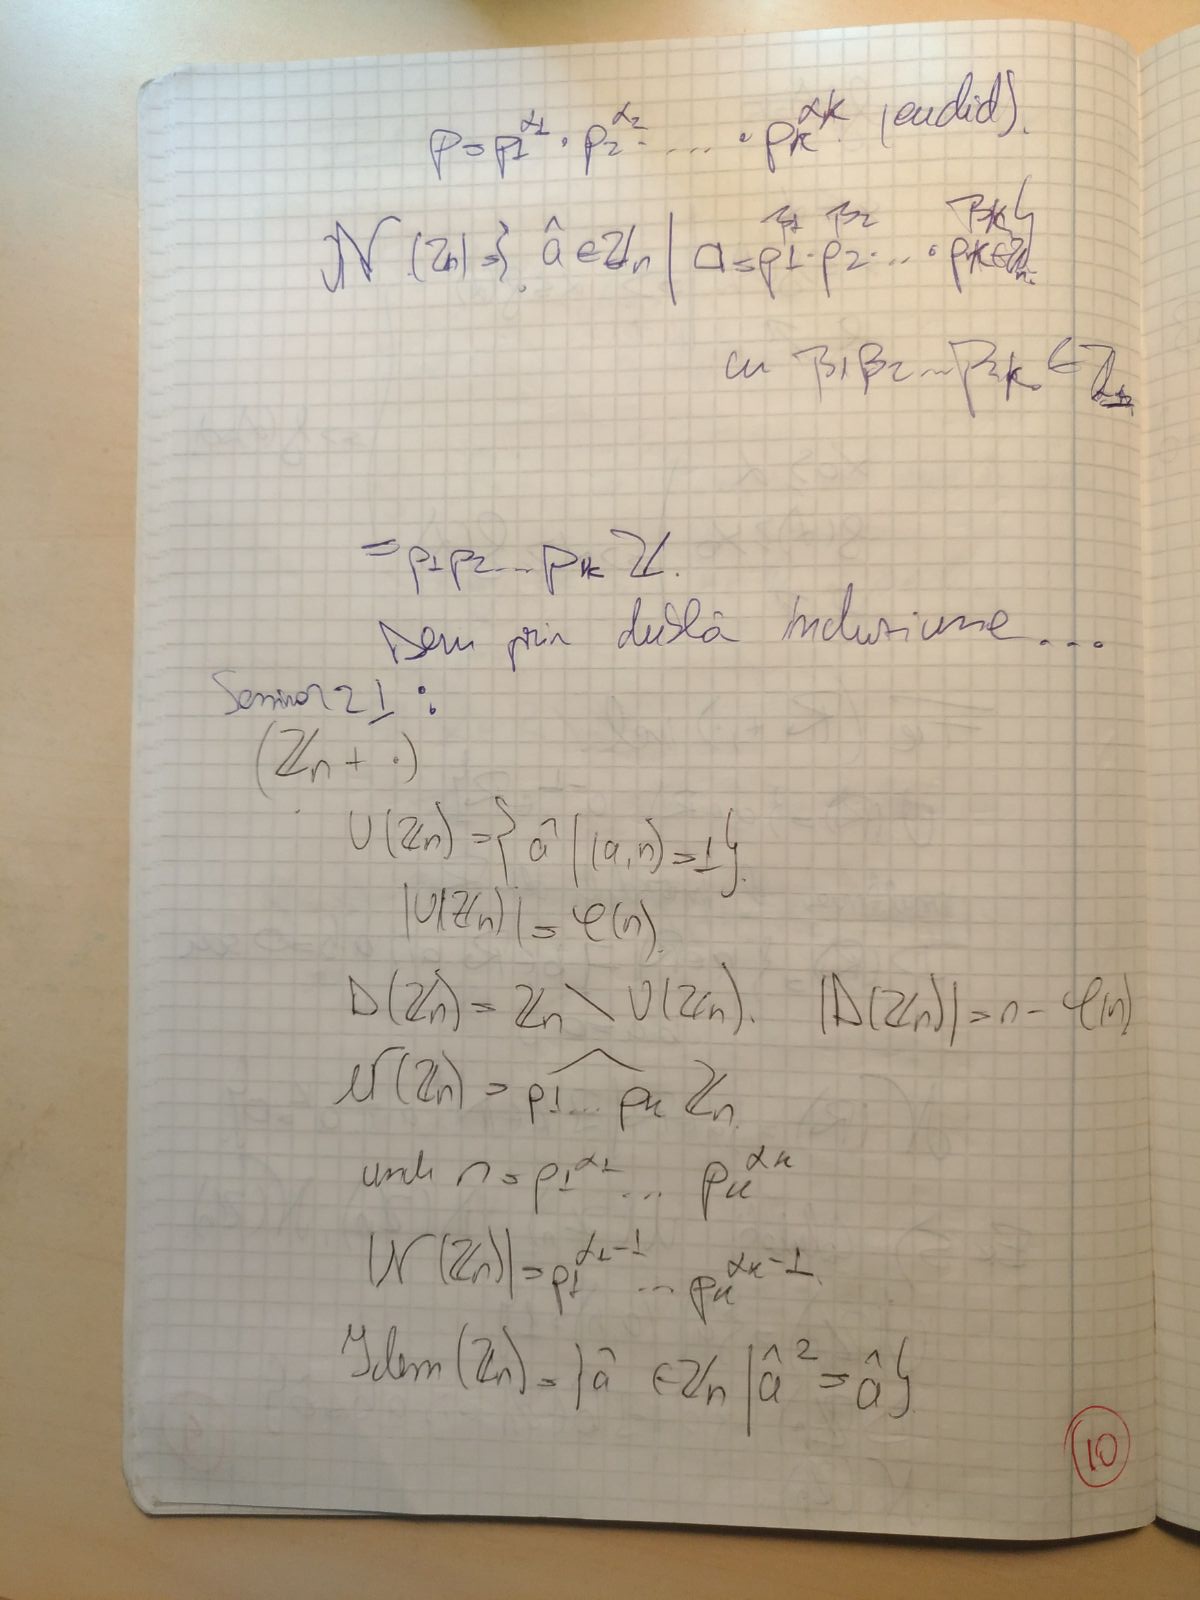 p = p1^α1 · p2^α2 · .... · pk^αk (euclid).
N(Zn) = { â ∈ Zn | a = p1^β1 · p2^β2 · ... · pk^βk ∈ Zn }
cu β1 β2 ... βk ∈ Z
= p1 p2 ... pk Z.
Dem prin dublă incluziune...
Seminar 1:
(Zn + ·)
U(Zn) = { â | (a,n) = 1 }.
|U(Zn)| = φ(n).
D(Zn) = Zn \ U(Zn). |D(Zn)| = n - φ(n)
N(Zn) = \widehat{p1 ... pk} Zn
unde n = p1^α1 ... pk^αk
|N(Zn)| = p1^{α1-1} ... pk^{αk-1}.
Idem(Zn) = { â ∈ Zn | â² = â }
10